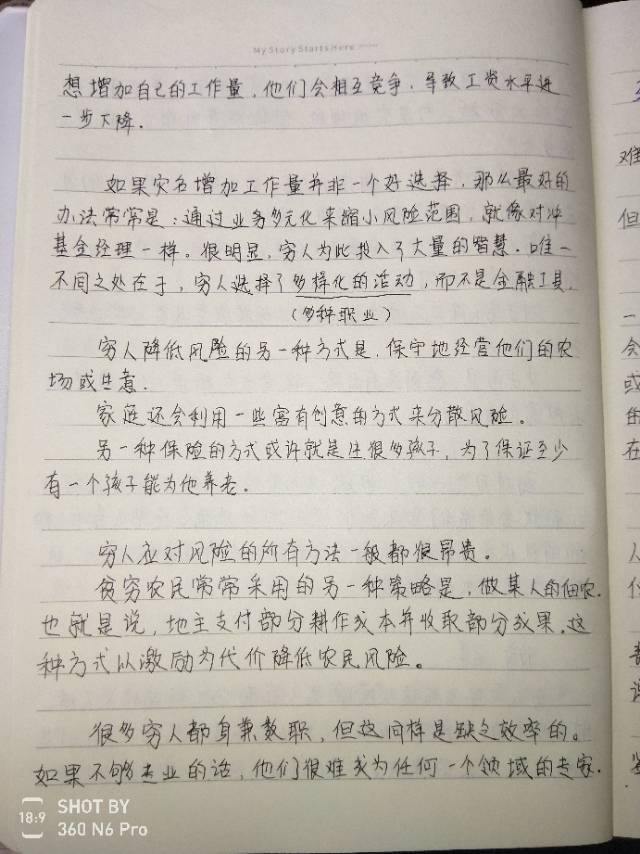 My Story Starts Here
想增加自己的工作量，他们会相互竞争，导致工资水平进
一步下降．
如果灾后增加工作量并非一个好选择，那么最好的
办法常常是：通过业务多元化来缩小风险范围，就像对冲
基金经理一样。很明显，穷人为此投入了大量的智慧．唯一
不同之处在于，穷人选择了多样化的活动，而不是金融工具．
（多种职业）
穷人降低风险的另一种方式是，保守地经营他们的农
场或生意．
家庭还会利用一些富有创意的方式来分散风险。
另一种保险的方式或许就是生很多孩子，为了保证至少
有一个孩子能为他养老．
穷人应对风险的所有方法一般都很昂贵。
贫穷农民常常采用的另一种策略是，做某人的佃农．
也就是说，地主支付部分耕作成本并收取部分成果．这
种方式以激励为代价降低农民风险。
很多穷人都身兼数职，但这同样是缺乏效率的。
如果不够专业的话，他们很难成为任何一个领域的专家．
难
但
一
会
或
在
18:9
SHOT BY
360 N6 Pro